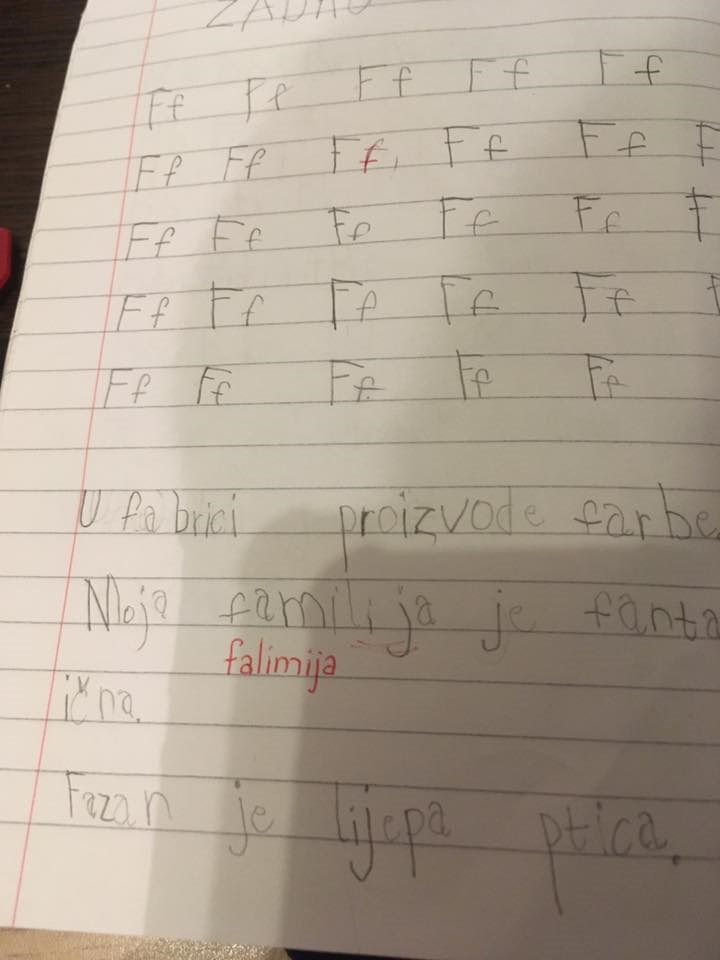 ZADAĆ
Ff Ff Ff Ff Ff
Ff Ff Ff, Ff Ff F
Ff Ff Ff Ff Ff F
Ff Ff Ff Ff Ff F
Ff Ff Ff Ff Ff
U fabrici proizvode farbe
Moja familija je fanta
falimija
ična.
Fazan je lijepa ptica.